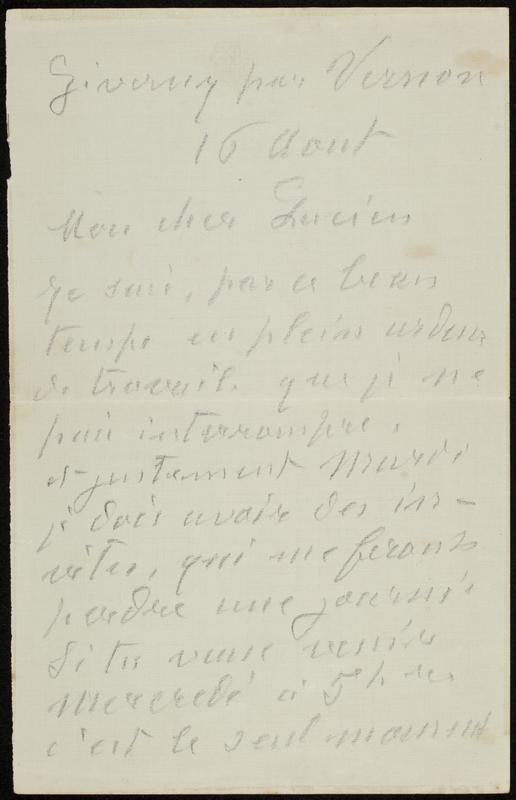 Giverny par Vernon
16 Aout
Mon cher Lucien
Je suis, par ce beau
temps en plein ardeur
de travail que je ne
puis interrompre,
et justement Mardi
je dois avoir des in-
vités, qui me feront
perdre une journée
Si tu veux venir
Mercredi à 5 hres
c'est le seul moment